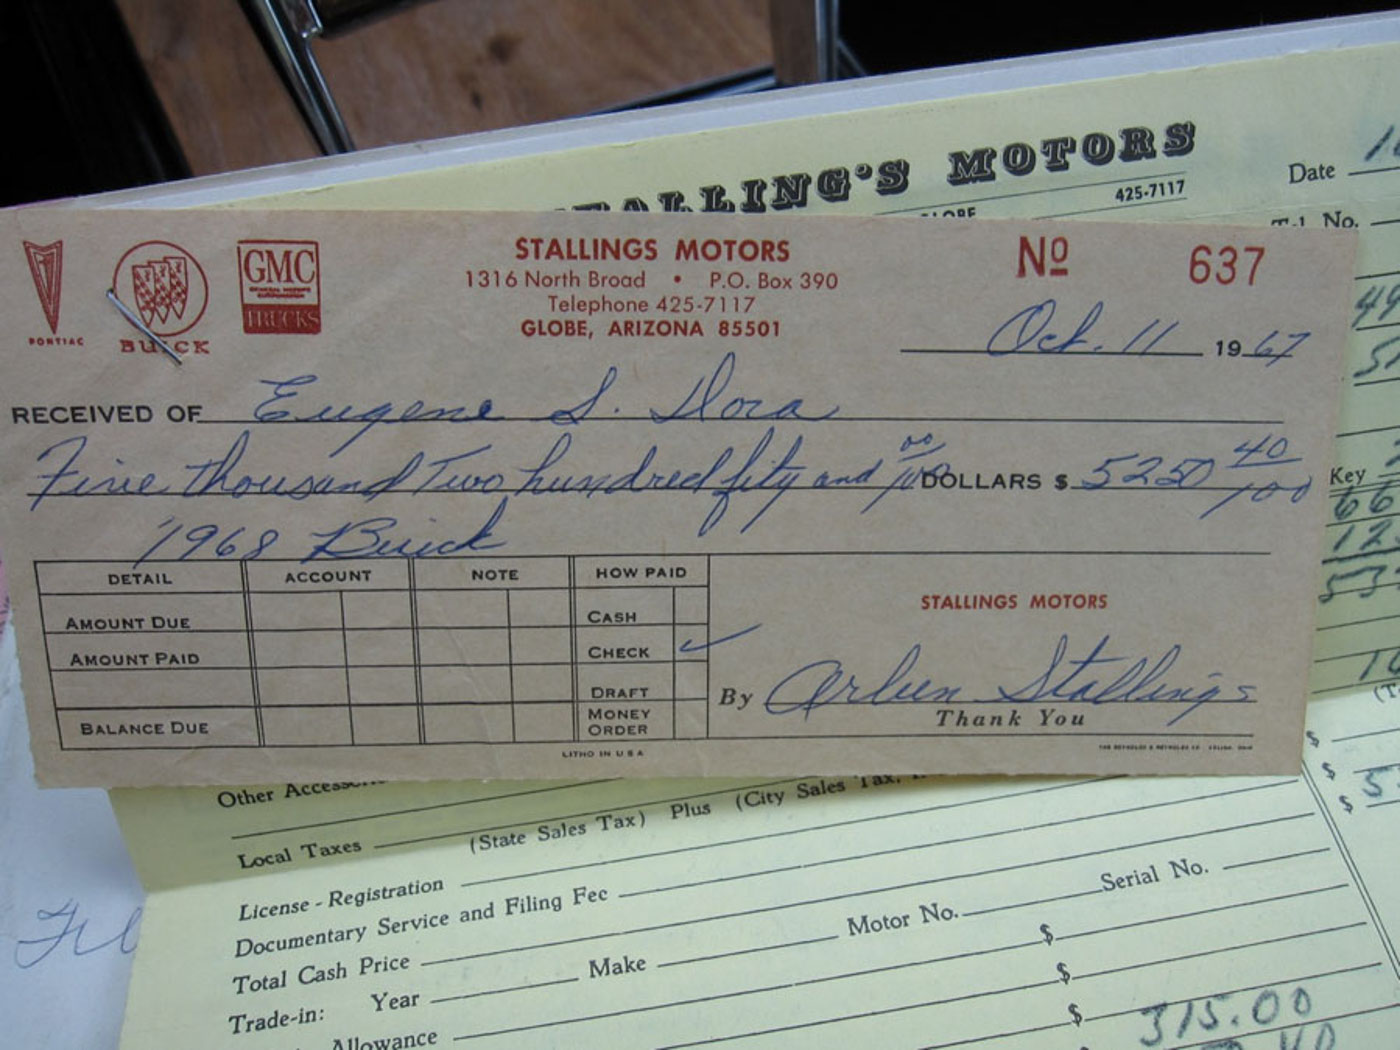 STALLING'S MOTORS
425-7117
Date
No.
PONTIAC
BUICK
GMC
TRUCKS
STALLINGS MOTORS
1316 North Broad • P.O. Box 390
Telephone 425-7117
GLOBE, ARIZONA 85501
No 637
Oct. 11 1967
RECEIVED OF Eugene S. Dora
Five thousand Two hundred fifty and 00/100 DOLLARS $ 5250 40/100
1968 Buick
DETAIL ACCOUNT NOTE HOW PAID
AMOUNT DUE
AMOUNT PAID
BALANCE DUE
CASH
CHECK ✓
DRAFT
MONEY ORDER
STALLINGS MOTORS
By Arleen Stallings
Thank You
LITHO IN U S A
Key
Other
Local Taxes (State Sales Tax) Plus (City Sales Tax,
License - Registration
Documentary Service and Filing Fee
Total Cash Price
Trade-in: Year Make Motor No. Serial No.
Allowance
$
$
$ 315.00